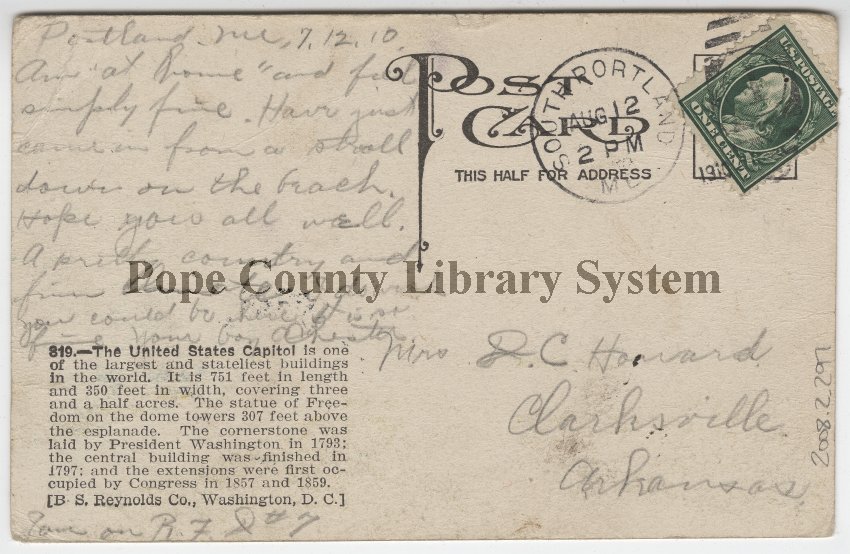 Portland, Me, 7.12.10.
Am "at home" and feel
simply fine. Have just
came in from a stroll
down on the beach.
Hope you all well.
A pretty country and
fine
you could be here. It is so
fine Your boy Chester
POST CARD
THIS HALF FOR ADDRESS
SOUTH PORTLAND
AUG 12
2 PM
ME
U.S. POSTAGE
ONE CENT
Pope County Library System
Mrs D. C. Howard
Clarksville
Arkansas
2008.2.297
819.—The United States Capitol is one
of the largest and stateliest buildings
in the world. It is 751 feet in length
and 350 feet in width, covering three
and a half acres. The statue of Free-
dom on the dome towers 307 feet above
the esplanade. The cornerstone was
laid by President Washington in 1793;
the central building was finished in
1797; and the extensions were first oc-
cupied by Congress in 1857 and 1859.
[B. S. Reynolds Co., Washington, D. C.]
I am on R. F. D #7